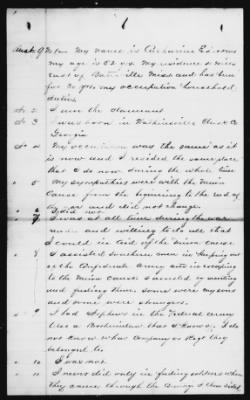 Answer My name is Catharine Edsons
my age is 52 yrs. My residence 2 miles
East of Batesville Miss and has been
for 20 yrs my occupation household
duties
" 2 I am the claimant
" 3 I was born in Watkinsville Clark Co
Georgia
" 4 My occupation was the same as it
is now and I resided the same place
that I do now during the whole time
" 5 My sympathies were with the Union
Cause from the beginning to the end of
war and did not change.
" 6 I did not
" 7 I was at all times during the war
and willing to do all that
I could in aid of the Union cause
" 8 I assisted Southern men in keeping out
of the Confederate Army
to the Union cause I assisted in
and feeding them. some were my sons
and some were strangers.
" 9 I had Nephews in the Federal army
that I know of I do
not know what Company or Regt they
belonged to.
" 10 I was not
" 11 I never did only in feeding soldiers when
they came through the Country